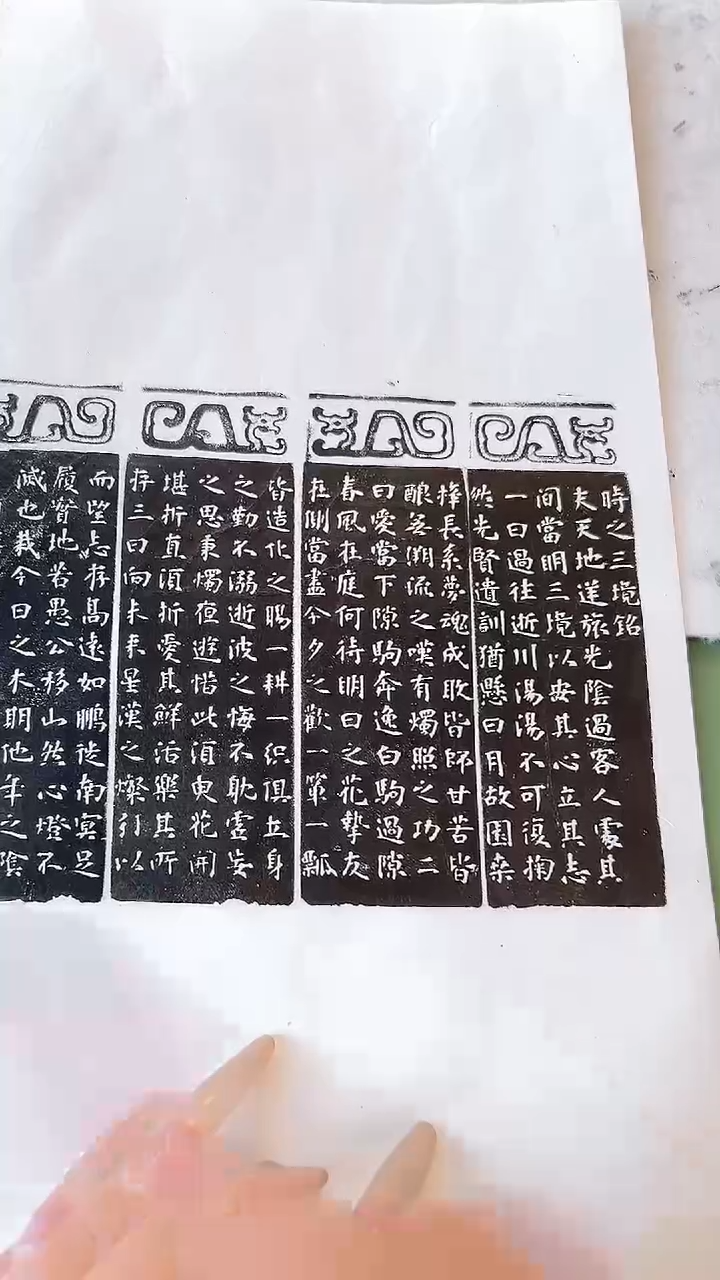 時之三境銘
夫天地逆旅光陰過客人處其
間當明三境以安其心立其志
一曰過往逝川湯湯不可復掬
然先賢遺訓猶懸日月故園桑
梓長系夢魂成敗皆師甘苦皆
釀無溯流之嘆有燭照之功二
曰愛當下隙駒奔逸白駒過隙
春風在庭何待明日之花摯友
在側當盡今夕之歡一簞一瓢
皆造化之賜一耕一織俱立身
之勤不溺逝波之悔不耽虛妄
之思秉燭夜遊惜此須臾花開
堪折直須折愛其鮮活樂其所
存三曰向未來星漢之燦引以
而望志存高遠如鵬徙南冥足
履實地若愚公移山然心燈不
滅也栽今日之木期他年之陰